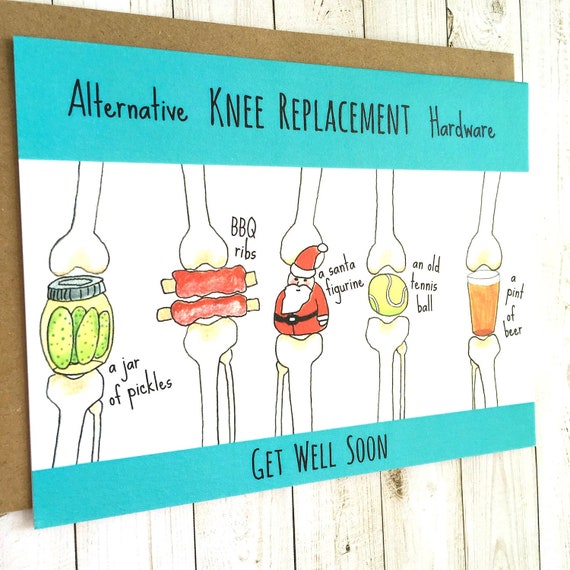 Alternative KNEE REPLACEMENT Hardware
a jar
of pickles
BBQ
ribs
a santa
figurine
an old
tennis
ball
a
pint
of
beer
GET WELL SOON